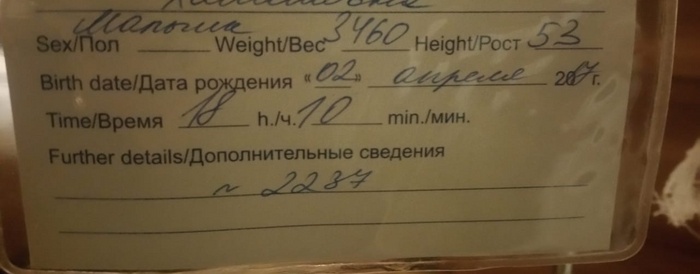 Мальчик
Sex/Пол Weight/Вес 3460 Height/Рост 53
Birth date/Дата рождения «02» апреля 2017 г.
Time/Время 18 h./ч. 10 min./мин.
Further details/Дополнительные сведения
~ 2237